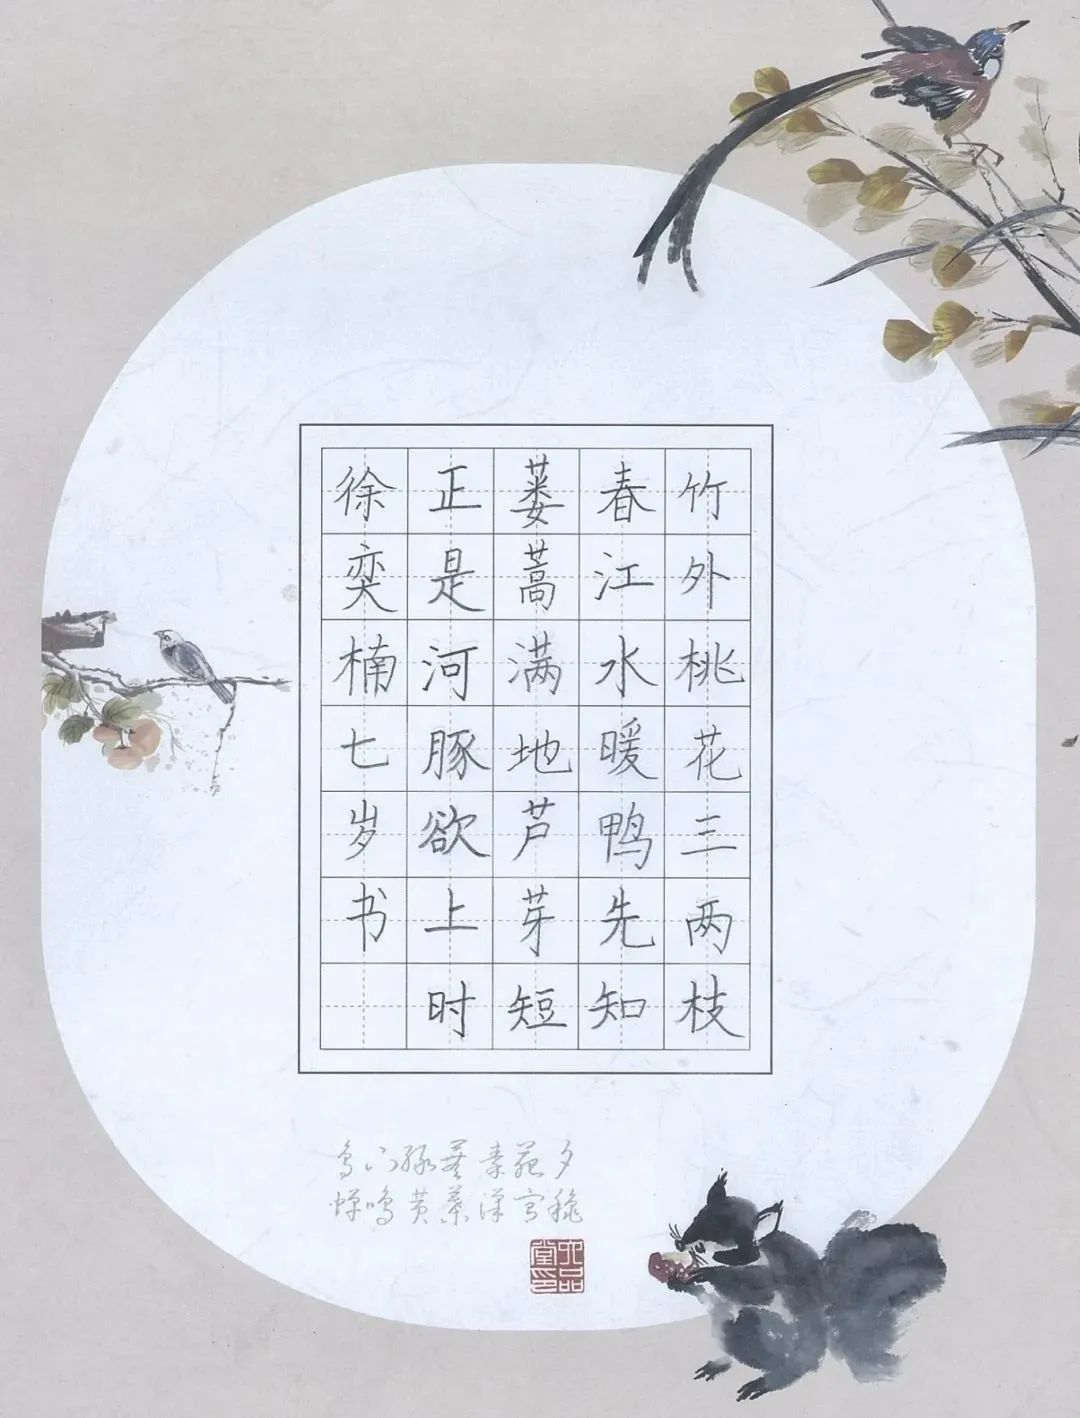 竹外桃花三两枝
春江水暖鸭先知
蒌蒿满地芦芽短
正是河豚欲上时
徐奕楠七岁书
蝉鸣黄叶汉宫秋